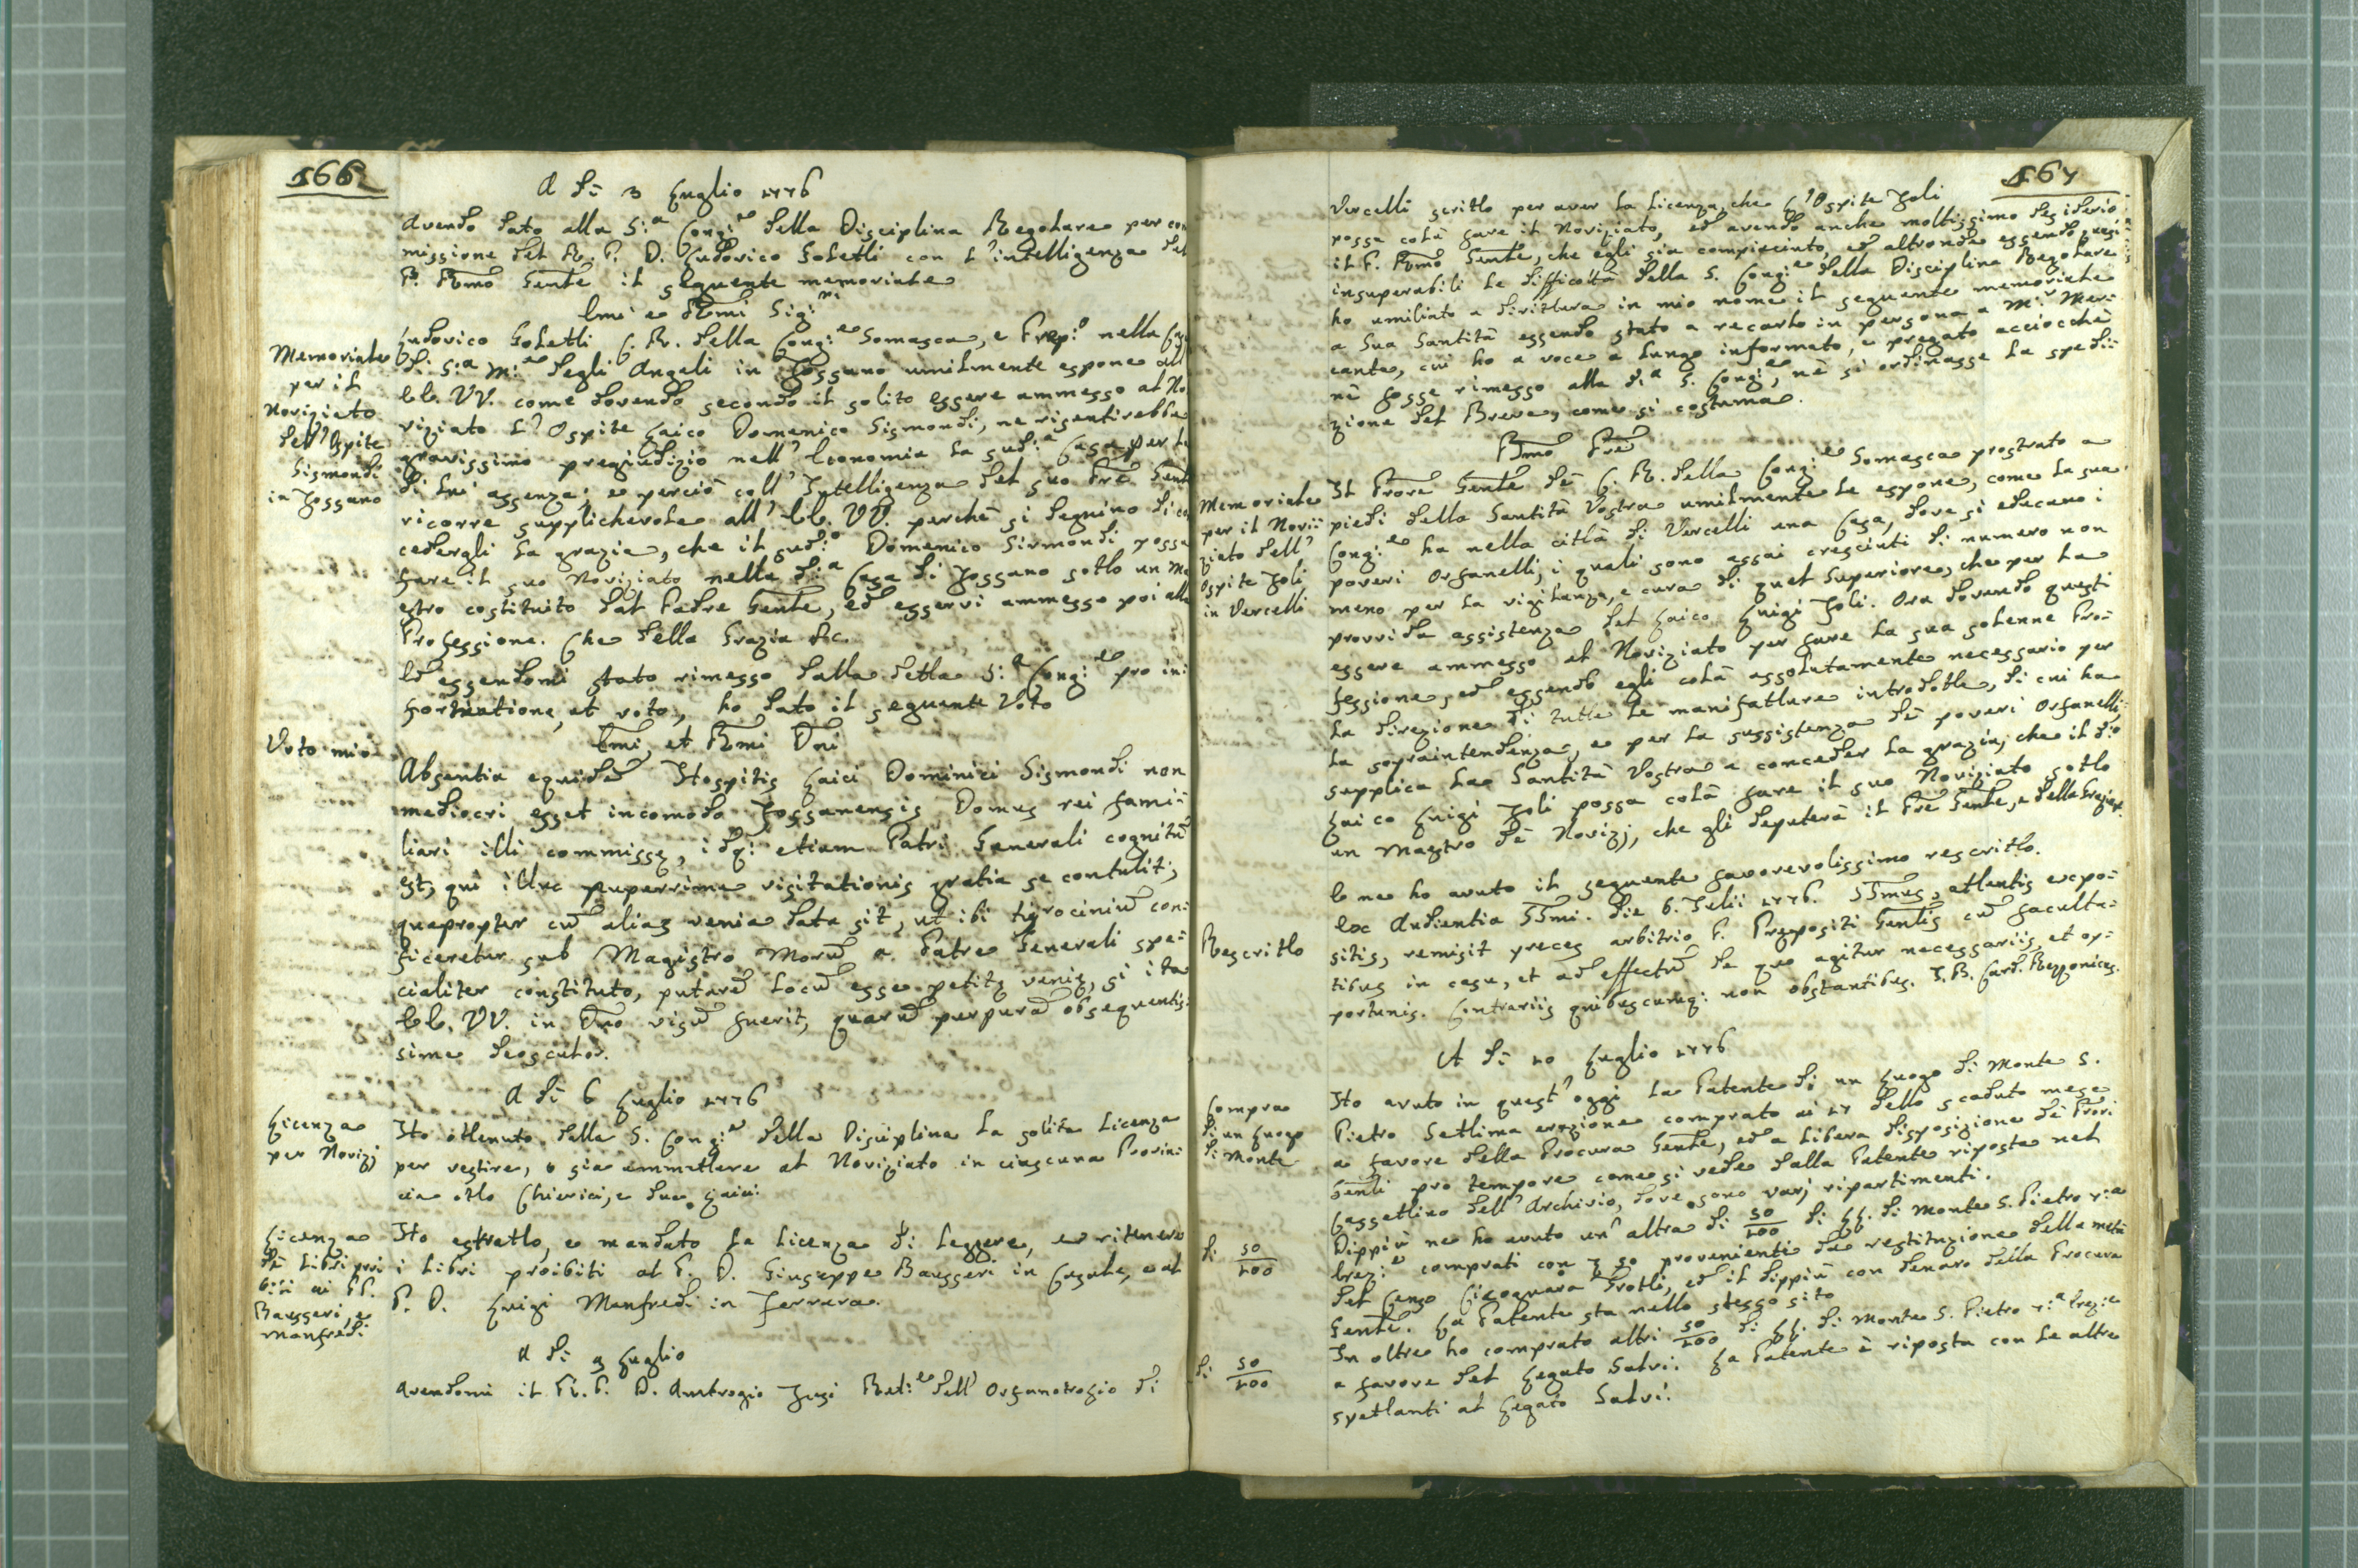 166
A dì 3 Luglio 1776
Avendo dato alla S:ª Cong:ne della Disciplina Regolare per com
missione del R. P. D. Ludovico Soletti con l'intelligenza del
P. Rmo Gente il seguente memoriale
Emi e Rmi Sig:ri
Ludovico Soletti C. R. della Cong:ne Somasca, e Prep:o nella Casa
Memoriale
per il
Noviziato
dell'Ospite
Sismondi
in Fossano
di S:ª M:ª degli Angeli in Fossano umilmente espone all
EE. VV. come dovendo secondo il solito essere ammesso al No
viziato l'Ospite Laico Domenico Sismondi, ne risentirebbe
gravissimo pregiudizio nell'Economia la sud:ª Casa per la
di lui assenza; e perciò coll'Intelligenza del suo Pre Gente
ricorre supplichevole all'EE. VV. perchè si degnino di con
cedergli la grazia, che il sud:o Domenico Sismondi possa
fare il suo Noviziato nella d:ª Casa di Fossano sotto un Ma
estro costituito dal Padre Gente, ed esservi ammesso poi alla
Professione. Che della Grazia &c.
Ed essendomi stato rimesso dalla detta S:ª Cong:ne pro in:
formatione, et voto, ho dato il seguente Voto
Voto mio
Emi, et Rmi Dni
Absentia equidem Hospitis Laici Dominici Sismondi non
mediocri esset incomodo Fossanensis Domus rei fami:
liari illi commissę, idq: etiam Patri Generali cognitũ
est, qui illuc nuperrime visitationis gratia se contulit;
quapropter cũ alias venia data sit, ut ibi tyrociniũ con:
ficeretur sub Magistro Morũ a Patre Generali spe:
cialiter constituto, putarẽ locũ esse petitę venię, si ita
EE. VV. in Dno visũ fuerit, quarũ purpurã obsequentis:
sime deosculor.
A dì 6 Luglio 1776
Licenza
per Novizj
Ho ottenuto dalla S. Cong:ne della Disciplina la solita Licenza
per vestire, o sia ammettere al Noviziato in ciascuna Provin:
cia otto Chierici, e due Laici.
Licenza
de' Libri proi
biti ai PP.
Bausseri, e
Manfredi
Ho estratto, e mandato la Licenza di leggere, e ritenere
i Libri proibiti al P. D. Giuseppe Bausseri in Casale, e al
P. D. Luigi Manfredi in Ferrara.
A dì 9 Luglio
Avendomi il R. P. D. Ambrogio Fusi Ret:re dell'Orfanotrofio di
167
Vercelli scritto per aver la Licenza, che l'Ospite Joli
possa colà fare il Noviziato, ed avendo anche moltissimo desiderio
il P. Rmo Gente, che egli sia compiaciuto, ed altronde essendo quasi
insuperabili le difficoltà della S. Cong:ne della Disciplina Regolare
ho umiliato a dirittura in mio nome il seguente memoriale
a Sua Santità essendo stato a recarlo in persona a M:r Mar:
cante, cui ho a voce a lungo informato, e pregato acciocchè
nè fosse rimesso alla d:ª S. Cong:ne, nè si ordinasse la spedi:
zione del Breve, come si costuma.
Bmo Pre
Memoriale
per il Novi:
ziato dell'
Ospite Joli
in Vercelli
Il Prore Gente de' C. R. della Cong:ne Somasca prostrato a
piedi della Santità Vostra umilmente le espone, come la sua
Cong:ne ha nella città di Vercelli una Casa, dove si educano i
poveri Orfanelli, i quali sono assai cresciuti di numero non
meno per la vigilanza, e cura di quel Superiore, che per la
provvida assistenza del Laico Luigi Joli. Ora dovendo questi
essere ammesso al Noviziato per fare la sua solenne Pro:
fessione, ed essendo egli colà assolutamente necessario per
la direzione di tutte le manifatture introdotte, di cui ha
la sopraintendenza, e per la sussistenza de' poveri Orfanelli,
supplica la Santità Vostra a conceder la grazia, che il d:o
Laico Luigi Joli possa colà fare il suo Noviziato sotto
un Maestro de' Novizj, che gli deputerà il Pre Gente, e della Grazia &c.
E ne ho avuto il seguente favorevolissimo rescritto.
Rescritto
Ex Audientia SSmi. Die 6. Julii 1776. SSmus, attentis expo:
sitis, remisit preces arbitrio P. Prępositi Gentis cũ faculta:
tibus in casu, et ad effectũ de quo agitur necessariis, et op:
portunis. Contrariis quibuscumq: non obstantibus. J. B. Card. Rezzonicus.
A dì 10 Luglio 1776
Compra
di un Luogo
di Monte
Ho avuto in quest'oggi la Patente di un Luogo di Monte S.
Pietro Settima erezione comprato ai 17 dello scaduto mese
a favore della Procura Gente, ed a libera disposizione de' Prori
Genli pro tempore come si vede dalla Patente riposta nel
Cassettino dell'Archivio, dove sono varj ripartimenti.
di 50/100
Dippiù ne ho avuto un'altra di 50/100 di LL. di Monte S. Pietro 7:ª
Erez:ne comprati con 50 provenienti da restituzione della metà
del Censo Cicognara Trotti, ed il dippiù con denaro della Procura
Gente. La Patente sta nello stesso sito
di 50/100
In oltre ho comprato altri 50/100 di LL. di Monte S. Pietro 7:ª Erez:ne
a favore del Legato Salvi. La Patente è riposta con le altre
spettanti al Legato Salvi.